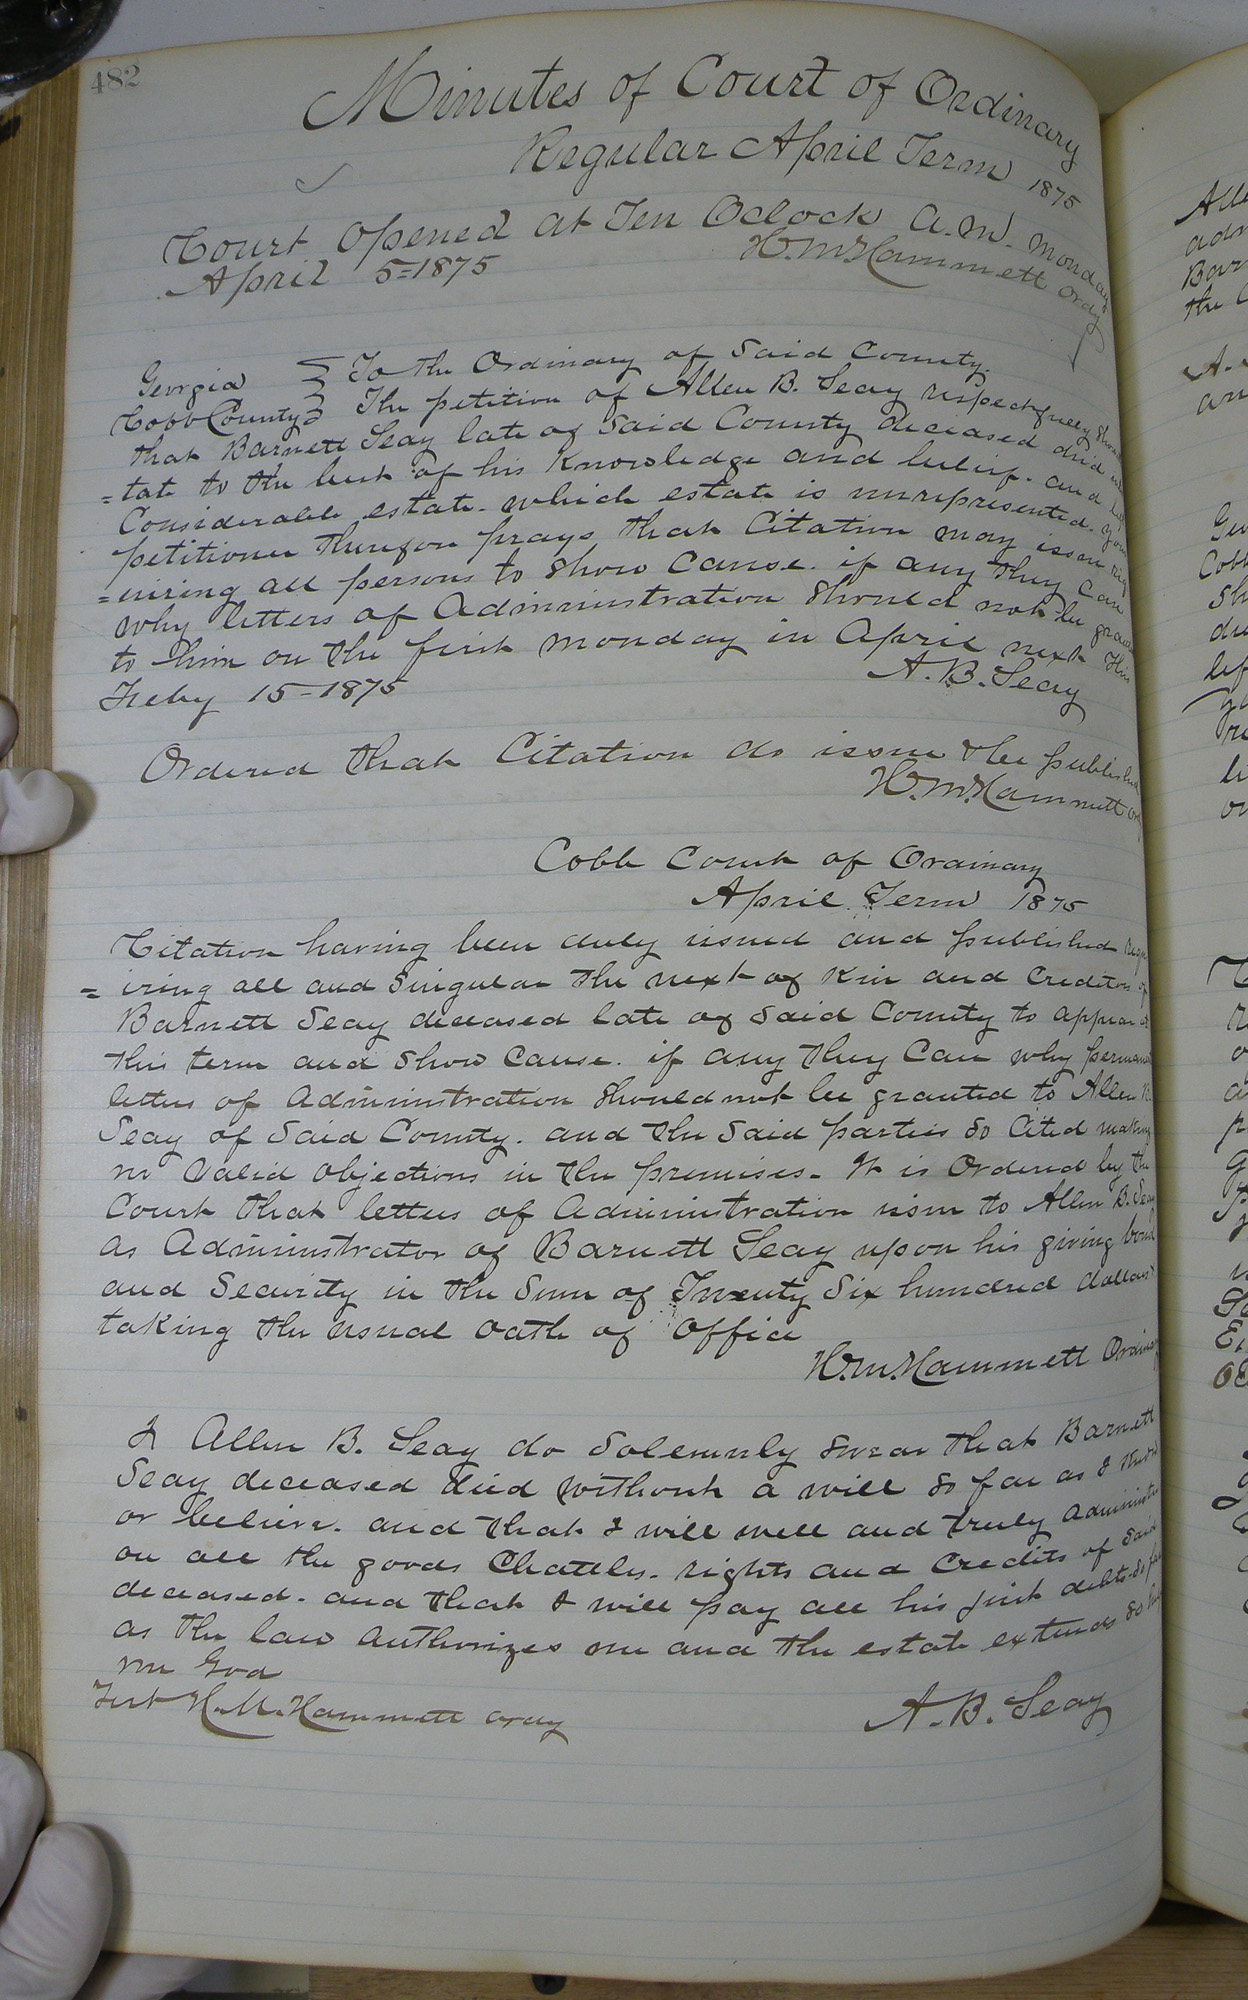 482
Minutes of Court of Ordinary
Regular April Term 1875
Court opened at Ten Oclock A.M. Monday
April 5=1875
H. M. Hammett Ordy
Georgia
Cobb County
To the Ordinary of Said County.
The petition of Allen B. Seay respectfully
that Barnett Seay late of Said County deceased died
=tate to the best of his Knowledge and belief. and
Considerable estate. which estate is unrepresented.
petitioner therefore prays that Citation may issue
=uiring all persons to show cause. if any they Can
why letters of Administration Should not be
to him on the first Monday in April next This
Feby 15-1875
A. B. Seay
Ordered that Citation do issue & be published
H. M. Hammett
Cobb Court of Ordinary
April Term 1875
Citation having been duly issued and published requ
=iring all and Singular the next of Kin and Creditors of
Barnett Seay deceased late of Said County to appear at
this term and Show Cause. if any they Can why
letters of Administration Should not be granted to Allen B.
Seay of Said County. and the Said parties So Cited making
no Valid objections in the premises. It is Ordered by the
Court that letters of Administration issue to Allen B. Seay
as Administrator of Barnett Seay upon his giving bond
and Security in the Sum of Twenty Six hundred dollars
taking the usual oath of Office
H. M. Hammett Ordinary
I Allen B. Seay do Solemnly Swear that Barnett
Seay deceased died without a will So far as I Know
or believe. and that I will well and truly administer
on all the goods Chattles. rights and Credits of Said
deceased. and that I will pay all his just debts. So far
as the law authorizes me and the estate extends So help
me God
Test H. M. Hammett Ordy
A. B. Seay